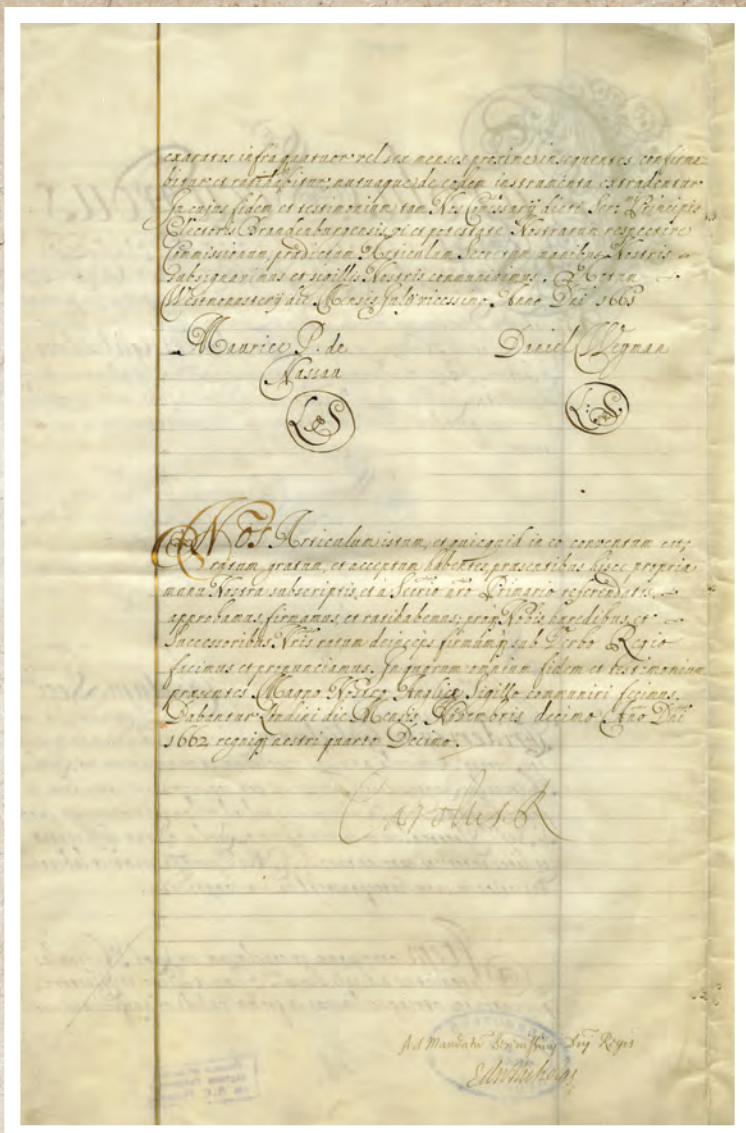 exaratas infra quatuor vel sex menses proxime insequentes confirma-
bitur et ratihabitur, mutuaque de eodem instrumenta extradentur
In cujus fidem et testimonium tam Nos Comissarij dicti Sermi Principis
Electoris Brandenburgensis vi et potestate Nostrarum respective
Commissionum, prædictum Articulum Secretum manibus Nostris
subsignavimus et sigillis Nostris communivimus. Actum
Westmonasterij die Mensis Julij vicessimo, Anno Dni 1661
Maurice P. de
Nassau
Daniel Weyman
L S
L S.
NOS Articulum istum, et quicquid in eo conventum est,
ratum, gratum, et acceptum habentes, præsentibus hisce propria
manu Nostra subscriptis, et a Secrio nro Primario referendatis
approbamus, firmamus, et ratihabemus; proq Nobis hæredibus, et
Successoribus Nris ratum deinceps firmumq sub Verbo Regio
facimus et pronunciamus. In quorum omnium fidem et testimonium
præsentes Magno Nostro Angliæ Sigillo communiri fecimus.
Dabantur Londini die Mensis Novembris decimo Ano Dni
1662 regniq nostri quarto Decimo.
Carolus R
Ad Mandatū Sermi Dnj Regis
Edw: Nicholas